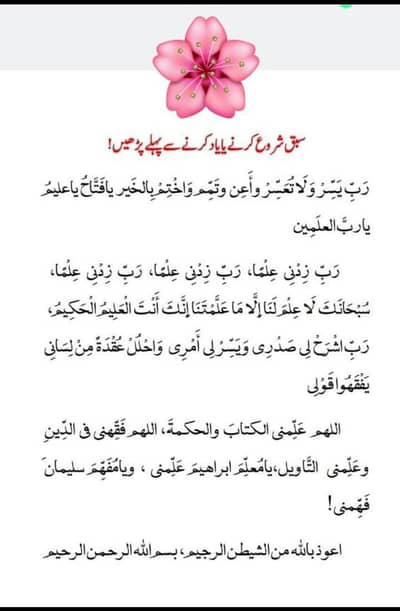 سبق شروع کرنے یا یاد کرنے سے پہلے پڑھیں!
رَبِّ یَسِّرْ وَلَا تُعَسِّرْ وأَعِن وتَمِّم وَاخْتِمْ بِالخَیر یافَتَّاحُ یاعلیمُ
یاربَّ العلَمِین
رَبِّ زِدْنِی عِلْمًا، رَبِّ زِدْنِی عِلْمًا، رَبِّ زِدْنِی عِلْمًا،
سُبْحَانَكَ لَا عِلْمَ لَنَا إِلَّا مَا عَلَّمْتَنَا إِنَّكَ أَنْتَ الْعَلِیمُ الْحَكِیمُ،
رَبِّ اشْرَحْ لِی صَدْرِی وَیَسِّرْ لِی أَمْرِی وَاحْلُلْ عُقْدَةً مِنْ لِسَانِی
یَفْقَهُوا قَوْلِی
اللهم عَلِّمنی الکتابَ والحکمةَ، اللهم فَقِّهنی فی الدِّینِ
وعَلِّمنی التَّاویل،یامُعلِّمَ ابراهیمَ عَلِّمنی ، ویامُفَهِّمَ سلیمانَ
فَهِّمنی!
اعوذ بالله من الشیطن الرجیم، بسم الله الرحمن الرحیم